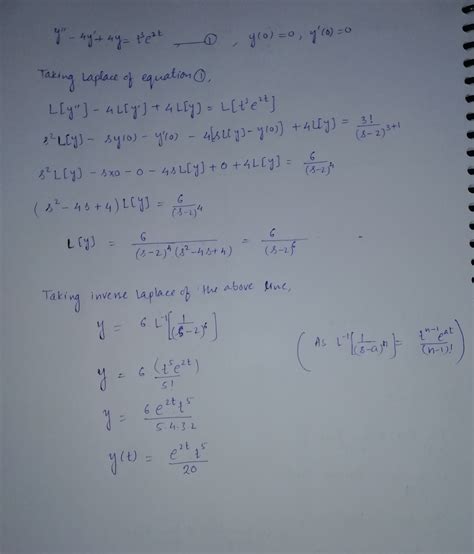 y'' - 4y' + 4y = t³e^{2t} ——— ① , y(0)=0, y'(0)=0
Taking Laplace of equation ①,
L[y''] - 4L[y'] + 4L[y] = L[t³e^{2t}]
s²L[y] - sy(0) - y'(0) - 4{sL[y] - y(0)} + 4L[y] = 3!/(s-2)^{3+1}
s²L[y] - s×0 - 0 - 4sL[y] + 0 + 4L[y] = 6/(s-2)^4
(s² - 4s + 4) L[y] = 6/(s-2)^4
L[y] = 6/((s-2)^4 (s²-4s+4)) = 6/(s-2)^6
Taking inverse Laplace of the above line,
y = 6 L^{-1}[1/(s-2)^6] (As L^{-1}[1/(s-a)^n] = t^{n-1}e^{at}/(n-1)!)
y = 6 (t^5e^{2t})/5!
y = 6e^{2t}t^5/5.4.3.2
y(t) = e^{2t}t^5/20